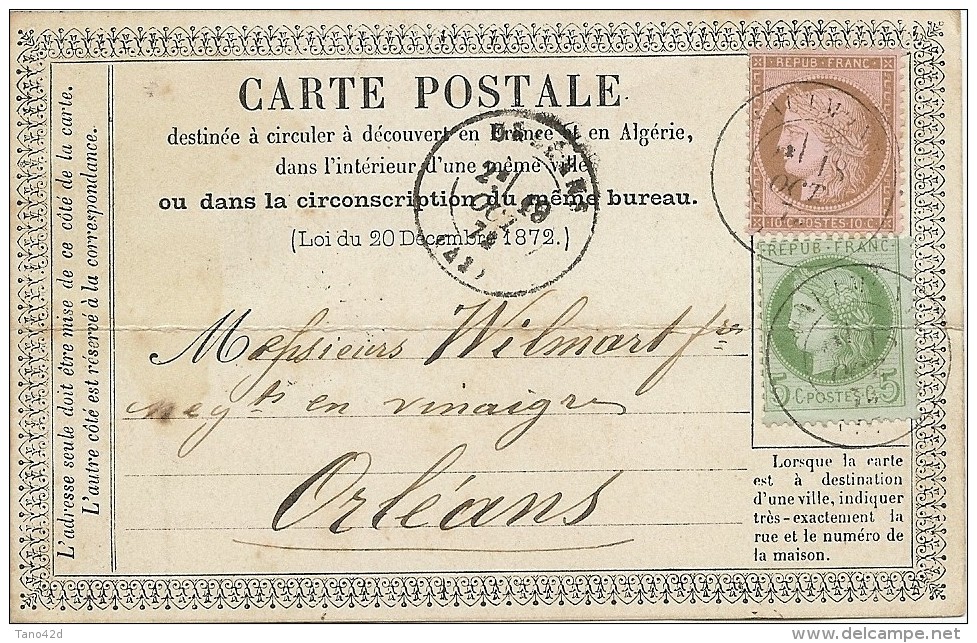 CARTE POSTALE.
destinée à circuler à découvert en France et en Algérie,
dans l'intérieur d'une même ville
ou dans la circonscription du même bureau.
(Loi du 20 Décembre 1872.)
REPUB · FRANC
10 C POSTES 10 C
18
OCT
REPUB · FRANC
5 C POSTES 5
19
OCT
Messieurs Wilmart fres
negts en vinaigre
Orléans
Lorsque la carte
est à destination
d'une ville, indiquer
très-exactement la
rue et le numéro de
la maison.
L'adresse seule doit être mise de ce côté de la carte.
L'autre côté est réservé à la correspondance.
Tano42d
delcampe.net